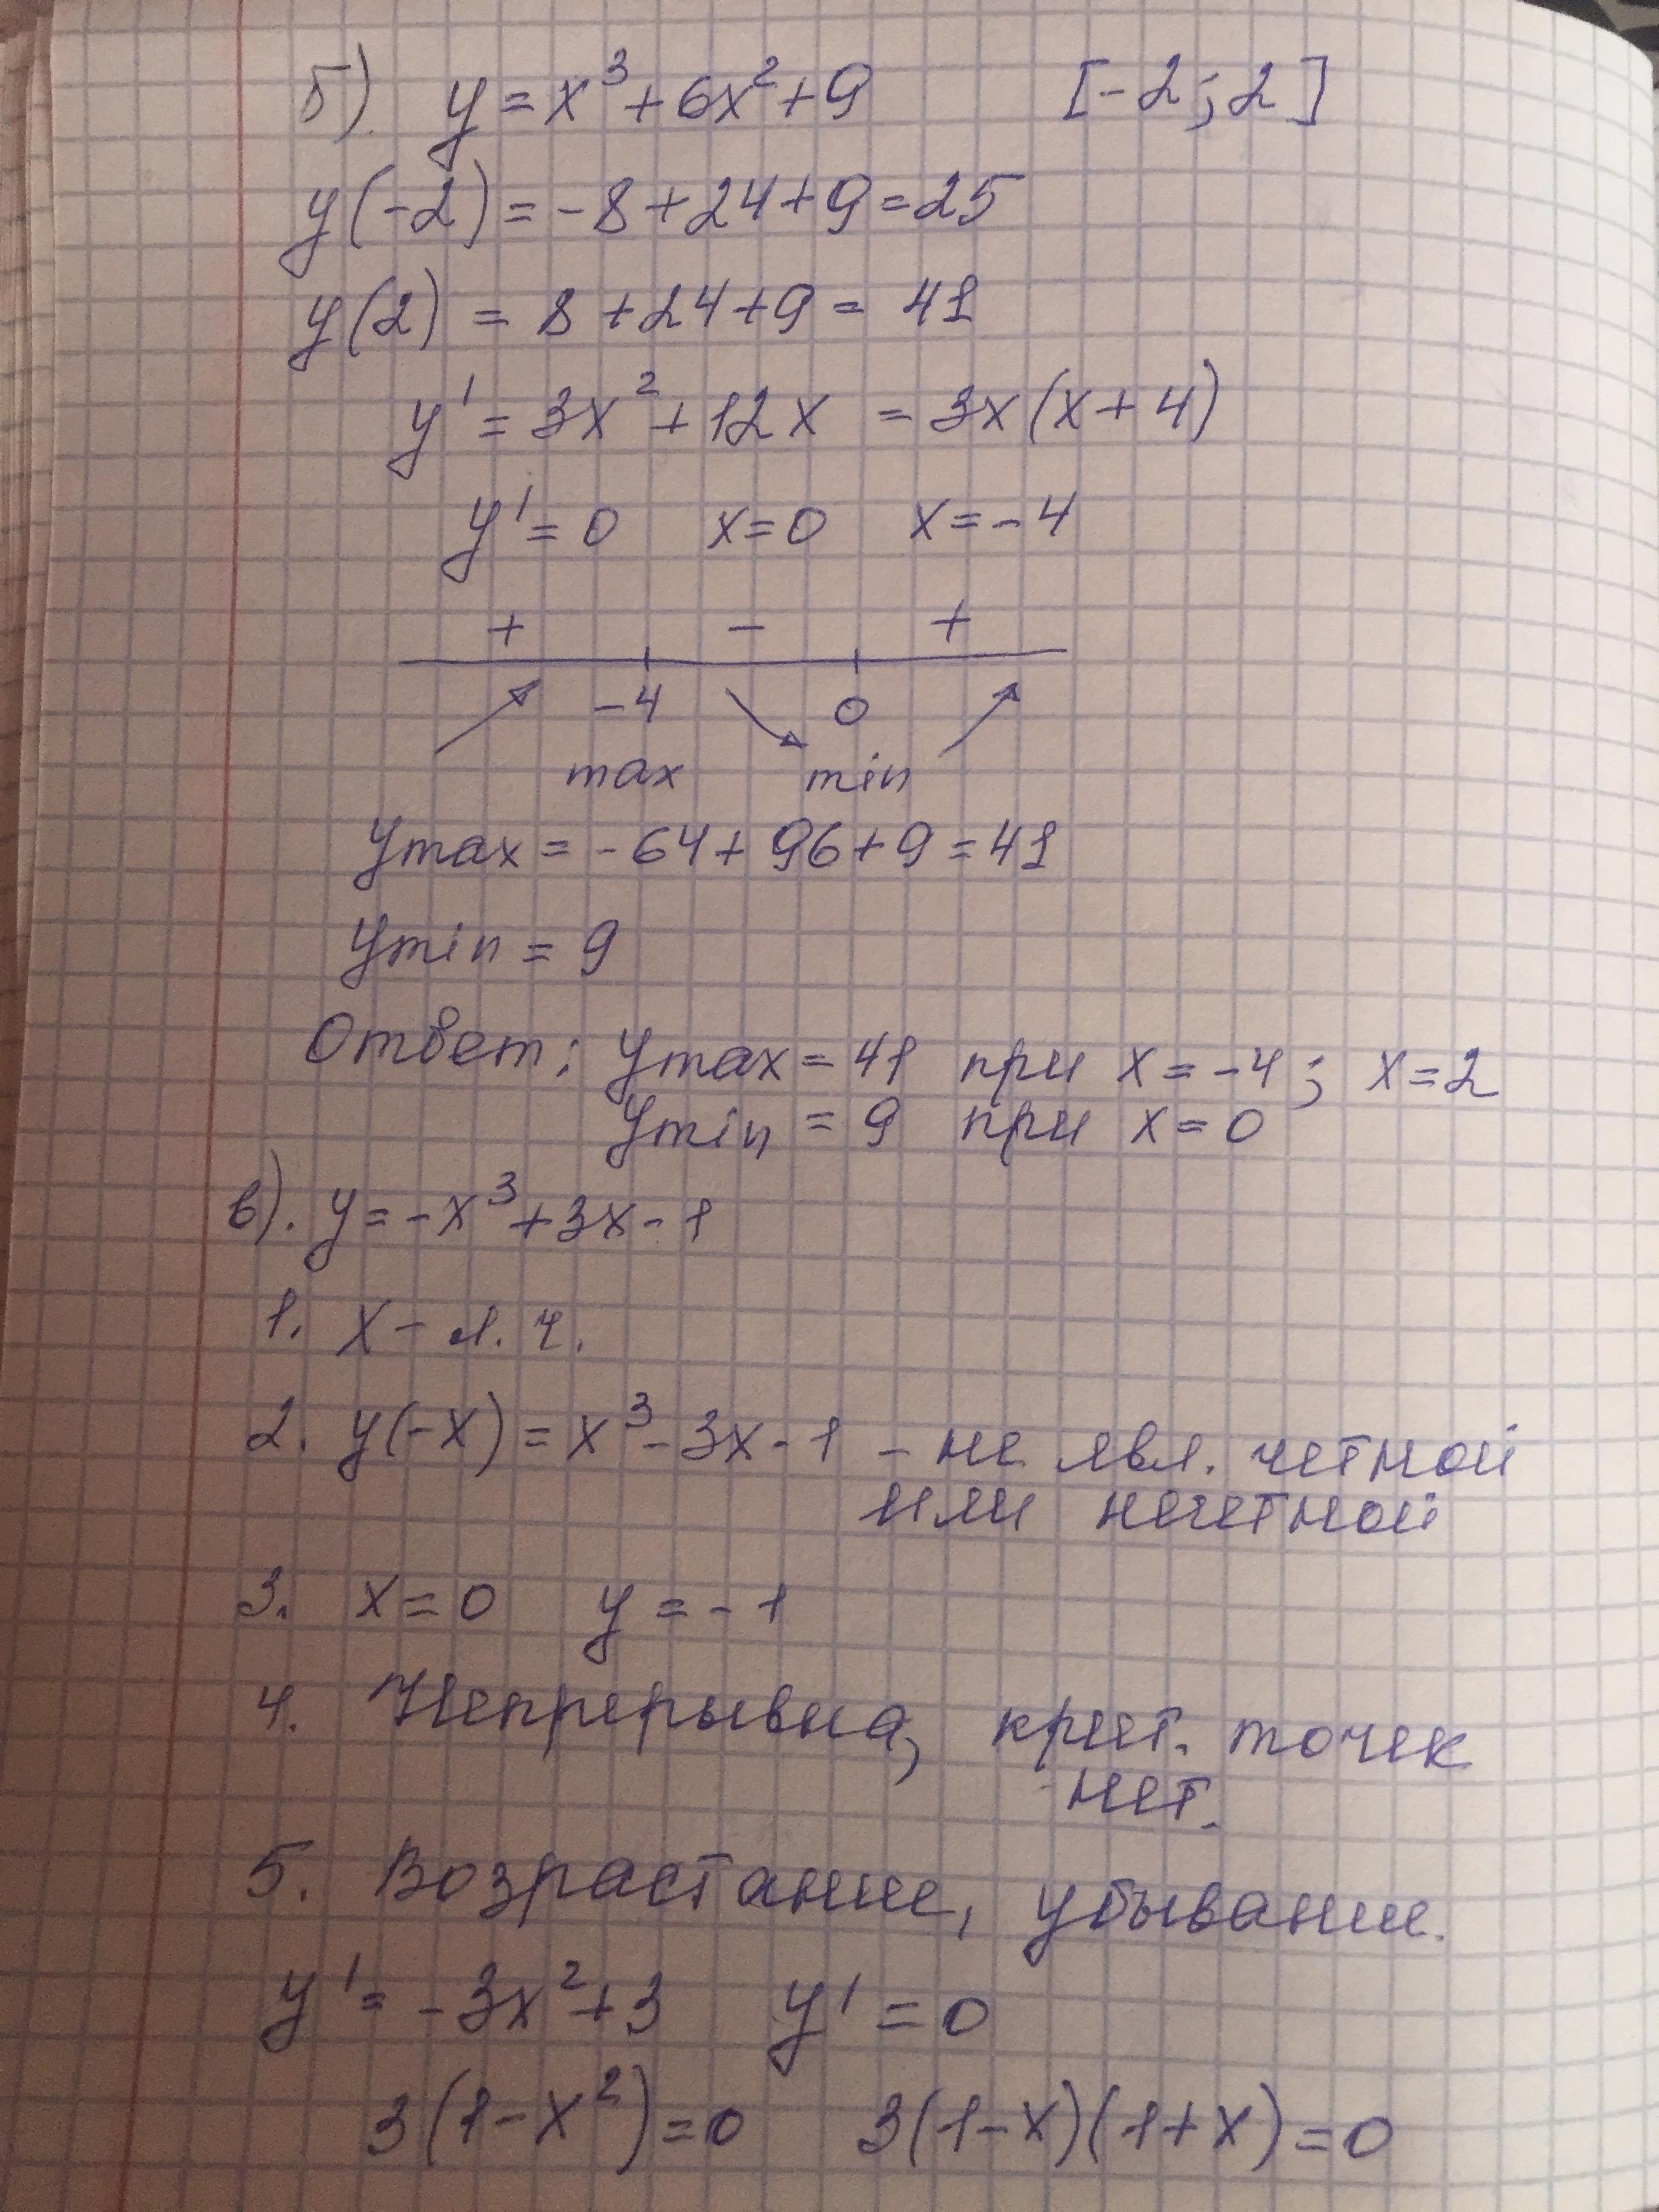 б). y = x³ + 6x² + 9 [-2; 2]
y(-2) = -8 + 24 + 9 = 25
y(2) = 8 + 24 + 9 = 41
y' = 3x² + 12x = 3x(x + 4)
y' = 0 x = 0 x = -4
+ - +
-4 0
max min
ymax = -64 + 96 + 9 = 41
ymin = 9
Ответ: ymax = 41 при x = -4; x = 2
ymin = 9 при x = 0
в). y = -x³ + 3x - 1
1. x - л. ч.
2. y(-x) = x³ - 3x - 1 - не явл. четной
или нечетной
3. x = 0 y = -1
4. Непрерывна, крит. точек
нет.
5. Возрастание, убывание.
y' = -3x² + 3 y' = 0
3(1 - x²) = 0 3(1 - x)(1 + x) = 0